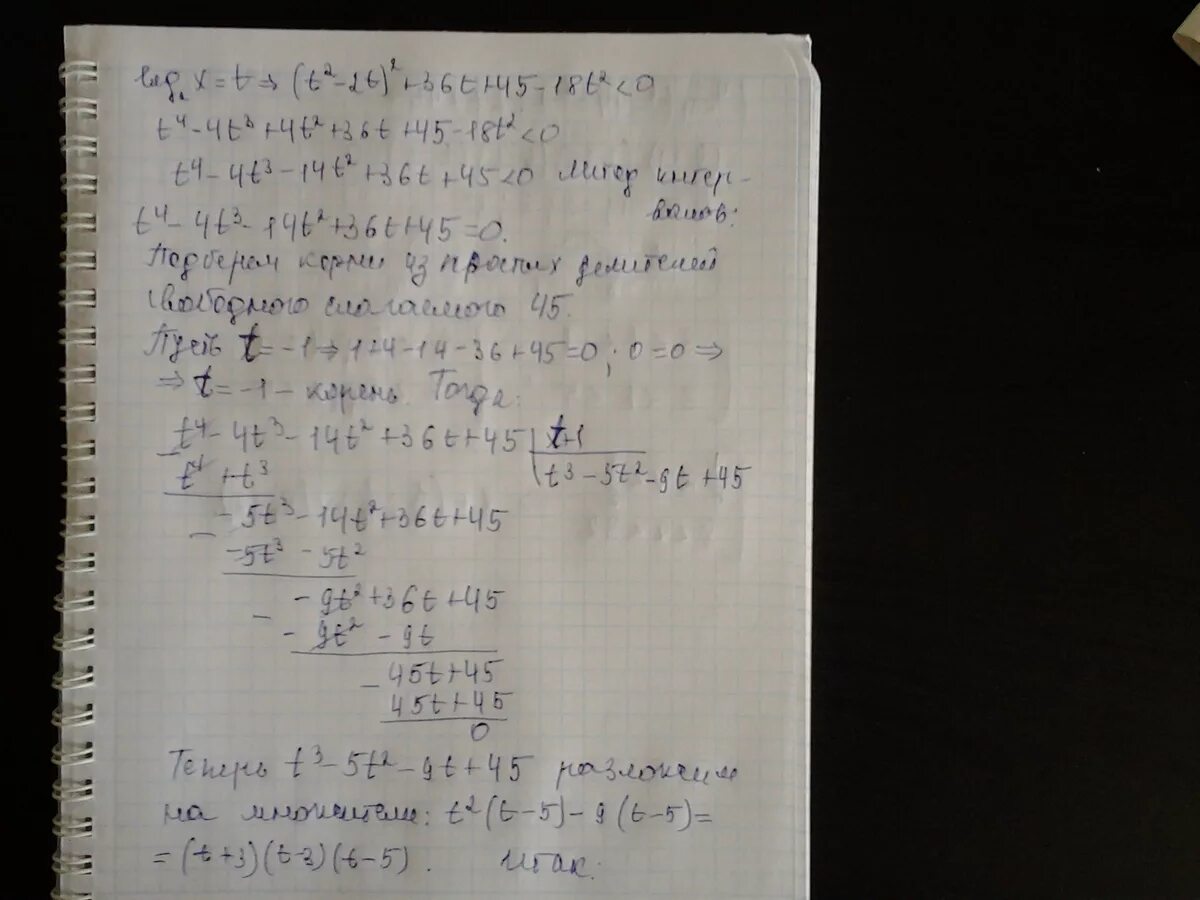 log₂ x = t ⇒ (t² - 2t)² + 36t + 45 - 18t² < 0
t⁴ - 4t³ + 4t² + 36t + 45 - 18t² < 0
t⁴ - 4t³ - 14t² + 36t + 45 < 0 Метод интер-
валов:
t⁴ - 4t³ - 14t² + 36t + 45 = 0.
Подберем корни из простых делителей
свободного слагаемого 45.
Пусть t = -1 ⇒ 1 + 4 - 14 - 36 + 45 = 0; 0 = 0 ⇒
⇒ t = -1 - корень. Тогда:
t⁴ - 4t³ - 14t² + 36t + 45 | t+1
- t⁴ + t³ | t³ - 5t² - 9t + 45
- 5t³ - 14t² + 36t + 45
- -5t³ - 5t²
- 9t² + 36t + 45
- - 9t² - 9t
45t + 45
- 45t + 45
0
Теперь t³ - 5t² - 9t + 45 разложим
на множители: t²(t - 5) - 9(t - 5) =
= (t + 3)(t - 3)(t - 5). Итак: